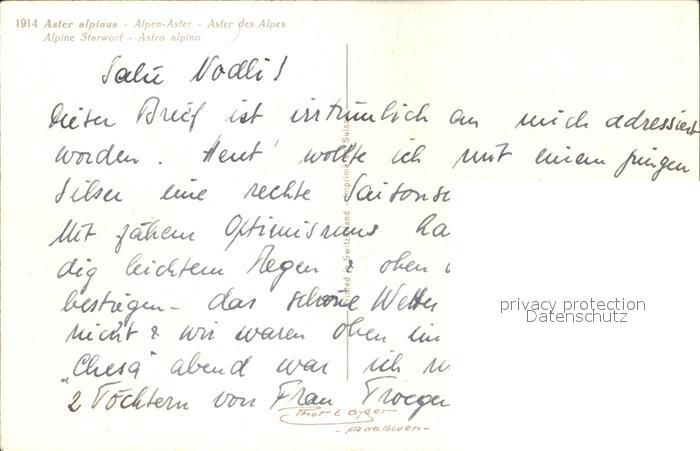 1914 Aster alpinus - Alpen-Aster - Aster des Alpes
Alpine Starwort - Astro alpino
Salü Nodli!
Dieser Brief ist irrtümlich an mich adressiert
worden. Heut' wollte ich mit einem jungen
Silser eine rechte Saisons
Mit zähem Optimismus ha
dig leichtem Regen & oben
bestiegen - das schöne Wetter
nicht & wir waren oben im
"Chesa" abend war ich
2 Töchtern von Frau Troeger
Printed in Switzerland - Imprimé en Suisse
privacy protection
Datenschutz
Phot E Gyger
- Adelboden -